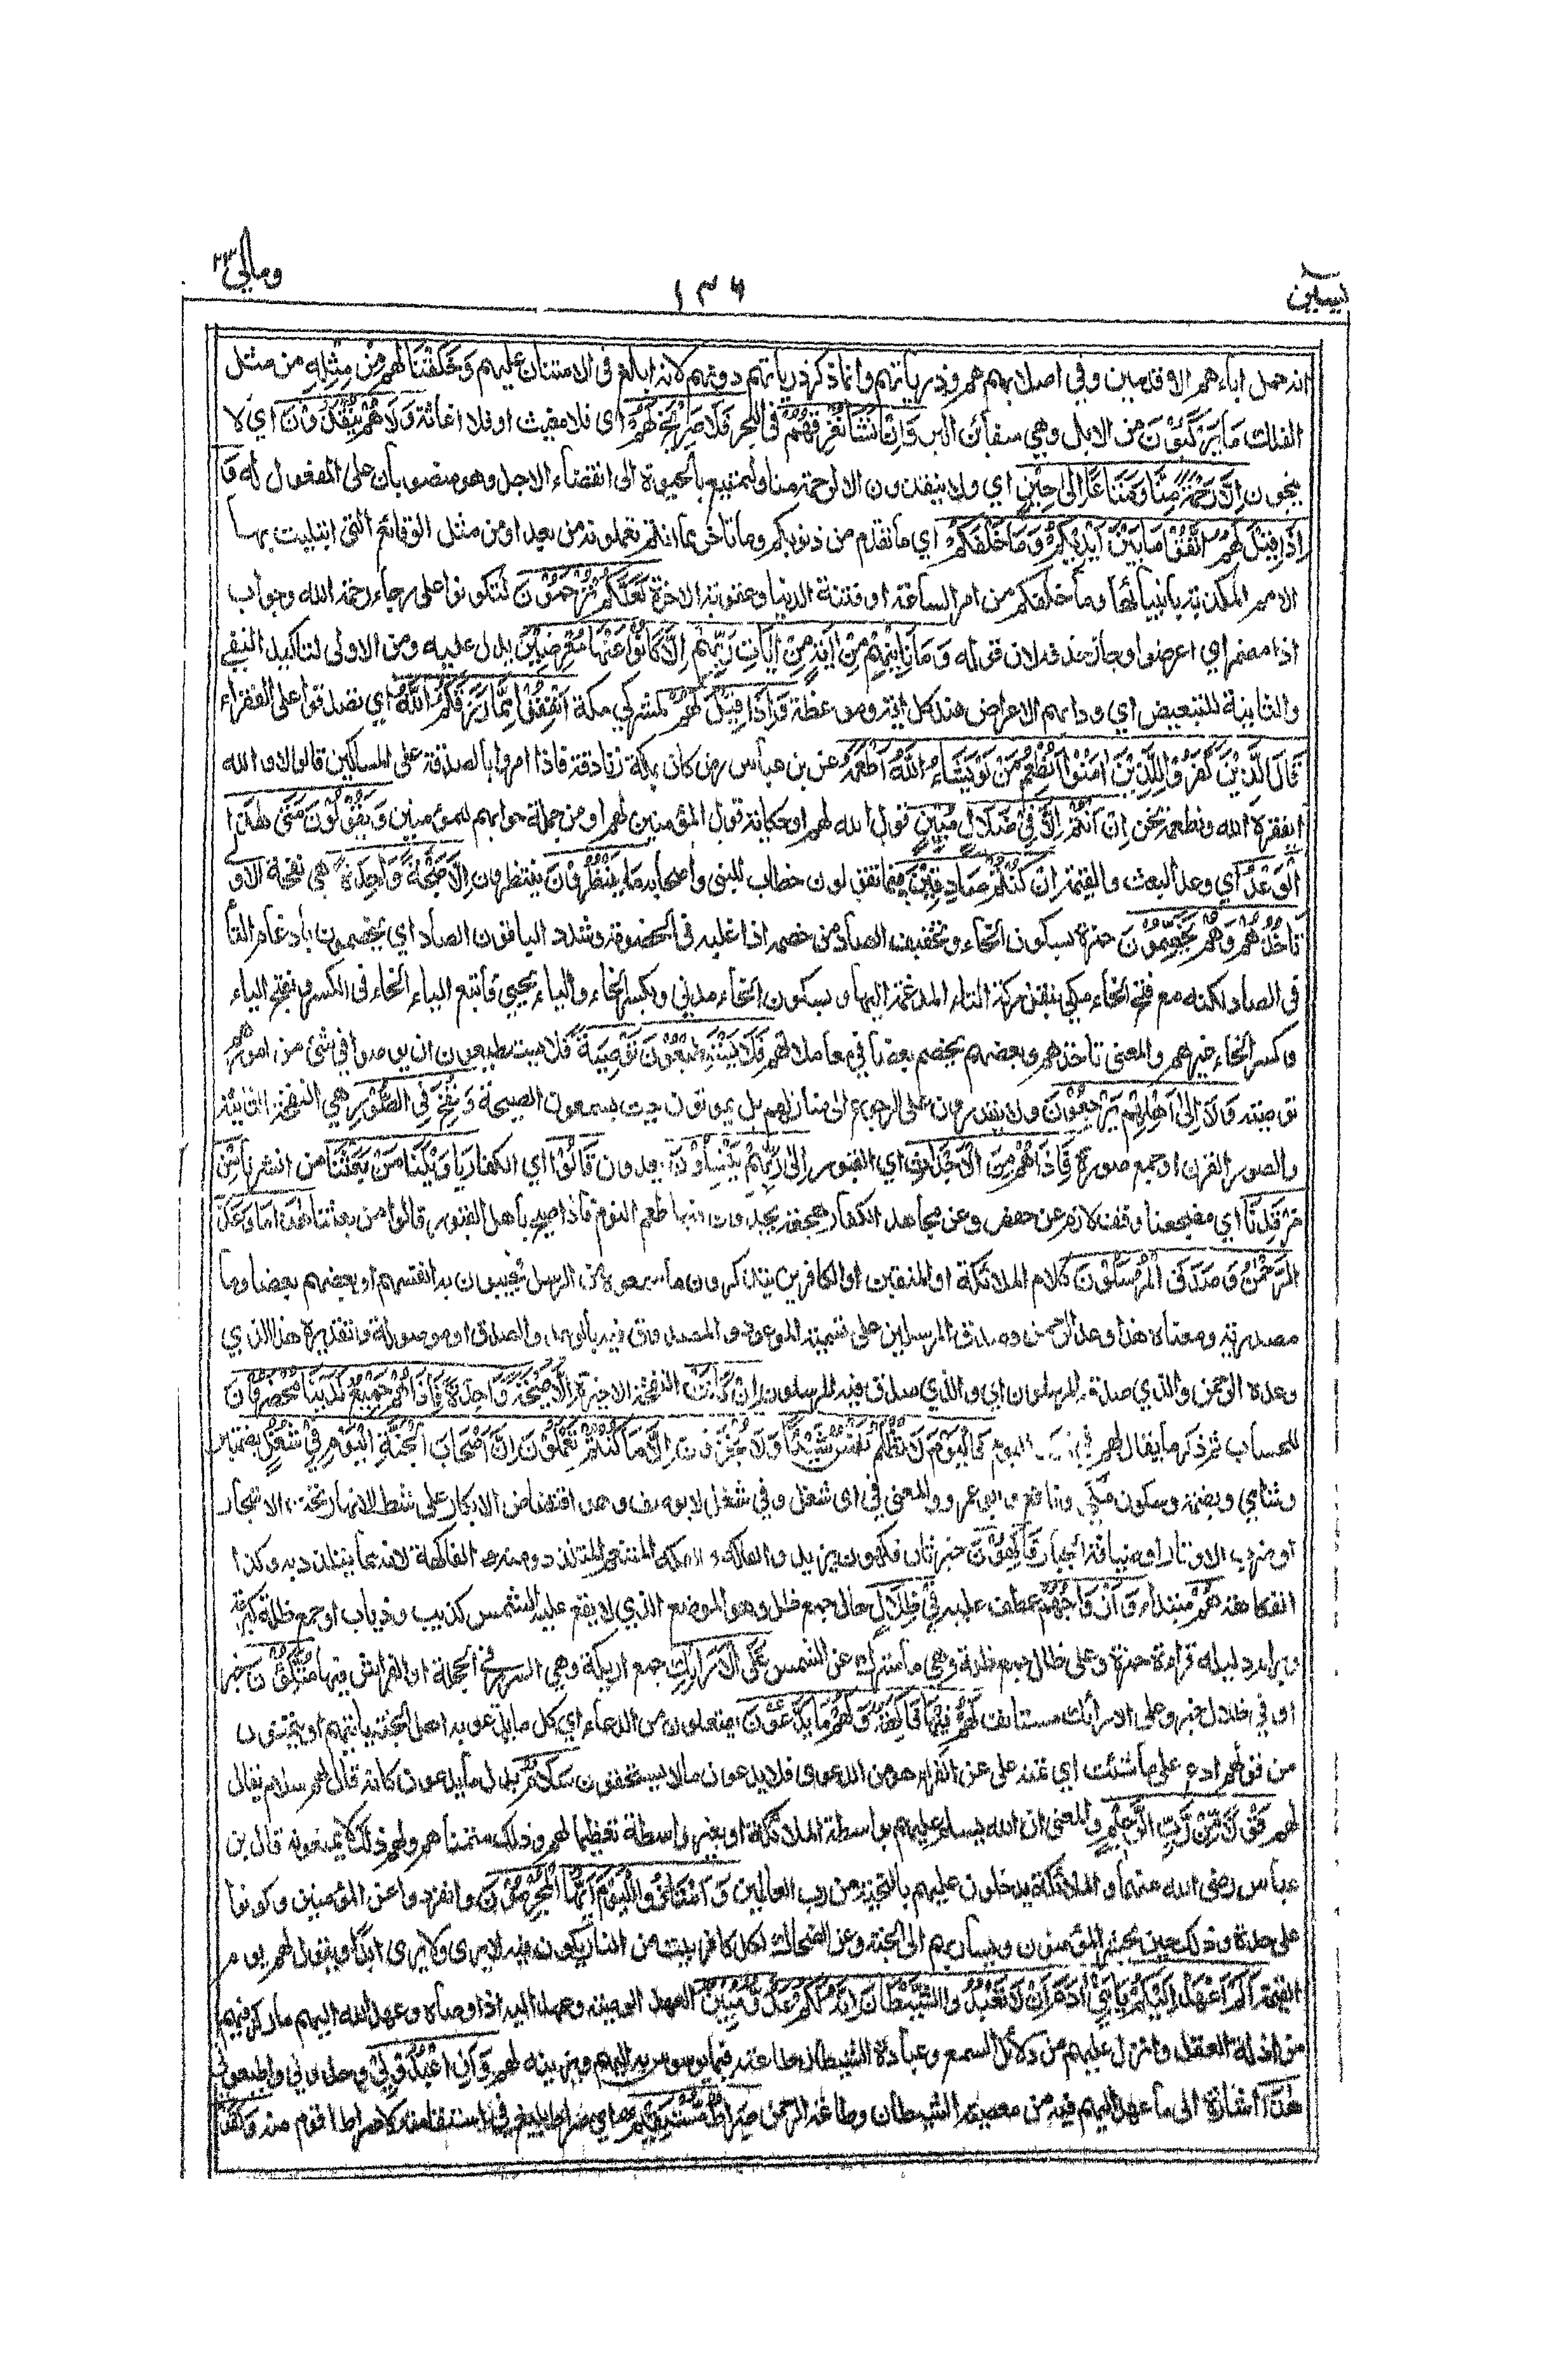 يسين ١٣٦ ومالي ٢٣
انه حمل اباءهم الاقدمين وفي اصلابهم هم وذرياتهم وانما ذكر ذرياتهم دونهم لانه ابلغ في الامتنان عليهم وَخَلَقْنَا لَهُمْ مِّنْ مِّثْلِهِ من مثل
الفلك مَا يَرْكَبُوْنَ من الابل وهي سفائن البر وَاِنْ نَّشَأْ نُغْرِقْهُمْ في البحر فَلَا صَرِيْخَ لَهُمْ اى فلا مغيث او فلا اغاثة وَلَا هُمْ يُنْقَذُوْنَ اي لا
ينجون اِلَّا رَحْمَةً مِّنَّا وَمَتَاعًا اِلٰى حِيْنٍ اي ولا ينقذون الا لرحمة منا ولتمتيع بالحيوة الى انقضاء الاجل وهو منصوبان على المفعول له وَ
اِذَا قِيْلَ لَهُمُ اتَّقُوْا مَا بَيْنَ اَيْدِيْكُمْ وَمَا خَلْفَكُمْ اي ما تقدم من ذنوبكم وما تاخر مما انتم تعملونه من بعد او من مثل الوقائع التي ابتليت بها
الامم المكذبة بانبيائها وما خلفكم من امر الساعة او فتنة الدنيا وعقوبة الاخرة لَعَلَّكُمْ تُرْحَمُوْنَ لتكونوا على رجاء رحمة الله وجواب
اذا مضمر اي اعرضوا وجاز حذفه لان قوله وَمَا تَأْتِيْهِمْ مِّنْ اٰيَةٍ مِّنْ اٰيَاتِ رَبِّهِمْ اِلَّا كَانُوْا عَنْهَا مُعْرِضِيْنَ يدل عليه ومن الاولى لتاكيد النفي
والثانية للتبعيض اي ودابهم الاعراض عند كل اية وموعظة وَاِذَا قِيْلَ لَهُمْ لمشركي مكة اَنْفِقُوْا مِمَّا رَزَقَكُمُ اللّٰهُ اي تصدقوا على الفقراء
قَالَ الَّذِيْنَ كَفَرُوْا لِلَّذِيْنَ اٰمَنُوْا اَنُطْعِمُ مَنْ لَّوْ يَشَاءُ اللّٰهُ اَطْعَمَهُ عن بن عباس رض كان بمكة زنادقة فاذا امروا بالصدقة على المساكين قالوا لا والله
ايفقره الله ونطعمه نحن اِنْ اَنْتُمْ اِلَّا فِيْ ضَلَالٍ مُّبِيْنٍ قول الله لهم او حكاية قول المؤمنين لهم او من جملة جوابهم للمؤمنين وَيَقُوْلُوْنَ مَتٰى هٰذَا
الْوَعْدُ اي وعد البعث والقيمة اِنْ كُنْتُمْ صَادِقِيْنَ فيما تقولون خطاب للنبي واصحابه مَا يَنْظُرُوْنَ ينتظرون اِلَّا صَيْحَةً وَّاحِدَةً هي نفخة الاولى
تَأْخُذُهُمْ وَهُمْ يَخِصِّمُوْنَ حمزة بسكون الخاء وتخفيف الصاد من خصمه اذا غلبه في الخصومة وشدد الباقون الصاد اي يختصمون بادغام التاء
في الصاد لكنه مع فتح الخاء مكي بنقل حركة التاء المدغمة اليها وبسكون الخاء مدني وبكسر الخاء والياء يحيى فاتبع الياء الخاء في الكسر وبفتح الياء
وكسر الخاء غيرهم والمعنى تاخذهم وبعضهم يخصم بعضا في معاملاتهم فَلَا يَسْتَطِيْعُوْنَ تَوْصِيَةً فلا يستطيعون ان يوصوا في شئ من امورهم
توصية وَلَا اِلٰى اَهْلِهِمْ يَرْجِعُوْنَ ولا يقدرون على الرجوع الى منازلهم بل يموتون حيث يسمعون الصيحة وَنُفِخَ فِي الصُّوْرِ هي النفخة الثانية
والصور القرن او جمع صورة فَاِذَا هُمْ مِّنَ الْاَجْدَاثِ اي القبور اِلٰى رَبِّهِمْ يَنْسِلُوْنَ يعدون قَالُوْا اي الكفار يَا وَيْلَنَا مَنْ بَعَثَنَا من انشرنا مِنْ
مَّرْقَدِنَا اي مضجعنا وقف لازم عن حفص وعن مجاهد للكفار هجعة يجدون فيها طعم النوم فاذا صيح باهل القبور قالوا من بعثنا هٰذَا مَا وَعَدَ
الرَّحْمٰنُ وَصَدَقَ الْمُرْسَلُوْنَ كلام الملائكة او المتقين او الكافرين يتذكرون ما سمعوه من الرسل فيجيبون به انفسهم او بعضهم بعضا وما
مصدرية ومعناه هذا وعد الرحمن وصدق المرسلين على تسمية الموعود والمصدوق فيه بالوعد والصدق او موصولة وتقديره هذا الذي
وعده الرحمن والذي صدقه المرسلون اي والذي صدق فيه المرسلون اِنْ كَانَتْ النفخة الاخيرة اِلَّا صَيْحَةً وَّاحِدَةً فَاِذَا هُمْ جَمِيْعٌ لَّدَيْنَا مُحْضَرُوْنَ
للحساب ثم ذكر ما يقال لهم في ذلك اليوم فَالْيَوْمَ لَا تُظْلَمُ نَفْسٌ شَيْئًا وَّلَا تُجْزَوْنَ اِلَّا مَا كُنْتُمْ تَعْمَلُوْنَ اِنَّ اَصْحَابَ الْجَنَّةِ الْيَوْمَ فِيْ شُغُلٍ بضمتين كوفي
وشامي وبضمة وسكون مكي ونافع وابي عمرو والمعنى في اى شغل وفي شغل لا يوصف وهو افتضاض الابكار على شط الانهار تحت الاشجار
او ضرب الاوتار او ضيافة الجبار فَاكِهُوْنَ خبر ثان فكهون يزيد والفاكه والفكه المتنعم المتلذذ ومنه الفاكهة لانه مما يتلذذ به وكذا
الفكاهة هُمْ مبتداء وَاَزْوَاجُهُمْ عطف عليه فِيْ ظِلَالٍ حال جمع ظل وهو الموضع الذي لا يقع عليه الشمس كذيب وذياب او جمع ظلة كبرمة
وبرام دليله قراءة حمزة وعلي ظلل جمع ظلة وهي ما سترك عن الشمس عَلَى الْاَرَائِكِ جمع اريكة وهي السرير في الحجلة او الفراش فيها مُتَّكِئُوْنَ خبر
او في ظلال خبر وعلى الارائك مستانف لَهُمْ فِيْهَا فَاكِهَةٌ وَّلَهُمْ مَّا يَدَّعُوْنَ يفتعلون من الدعاء اي كل ما يدعو به اهل الجنة ياتيهم او يتمنون
من قولهم ادع علي ما شئت اي تمنه علي عن الفراء هو من الدعوى فلا يدعون ما لا يستحقون سَلَامٌ بدل مما يدعون كانه قال لهم سلام يقال
لهم قَوْلًا مِّنْ رَّبٍّ رَّحِيْمٍ والمعنى ان الله يسلم عليهم بواسطة الملائكة او بغير واسطة تعظيما لهم وذلك متمناهم ولهم ذلك لا يمنعونه قال بن
عباس رضى الله عنهما والملائكة يدخلون عليهم بالتحية من رب العالمين وَامْتَازُوا الْيَوْمَ اَيُّهَا الْمُجْرِمُوْنَ وانفردوا عن المؤمنين وكونوا
على حدة وذلك حين يحشر المؤمنون ويسار بهم الى الجنة وعن الضحاك لكل كافر بيت من النار يكون فيه لا يرى ولا يرى ابدا ويقول لهم يوم
القيمة اَلَمْ اَعْهَدْ اِلَيْكُمْ يَا بَنِيْ اٰدَمَ اَنْ لَّا تَعْبُدُوا الشَّيْطَانَ اِنَّهُ لَكُمْ عَدُوٌّ مُّبِيْنٌ العهد الوصية وعهد اليه اذا وصاه وعهد الله اليهم ما ركز فيهم
من ادلة العقل وانزل عليهم من دلائل السمع وعبادة الشيطان طاعته فيما يوسوس به اليهم ويزينه لهم وَاَنِ اعْبُدُوْنِيْ وحدوني واطيعوني
هٰذَا اشارة الى ما عهد اليهم فيه من معصية الشيطان وطاعة الرحمن صِرَاطٌ مُّسْتَقِيْمٌ اي صراط بليغ في استقامته لا صراط اقوم منه وَلَقَدْ